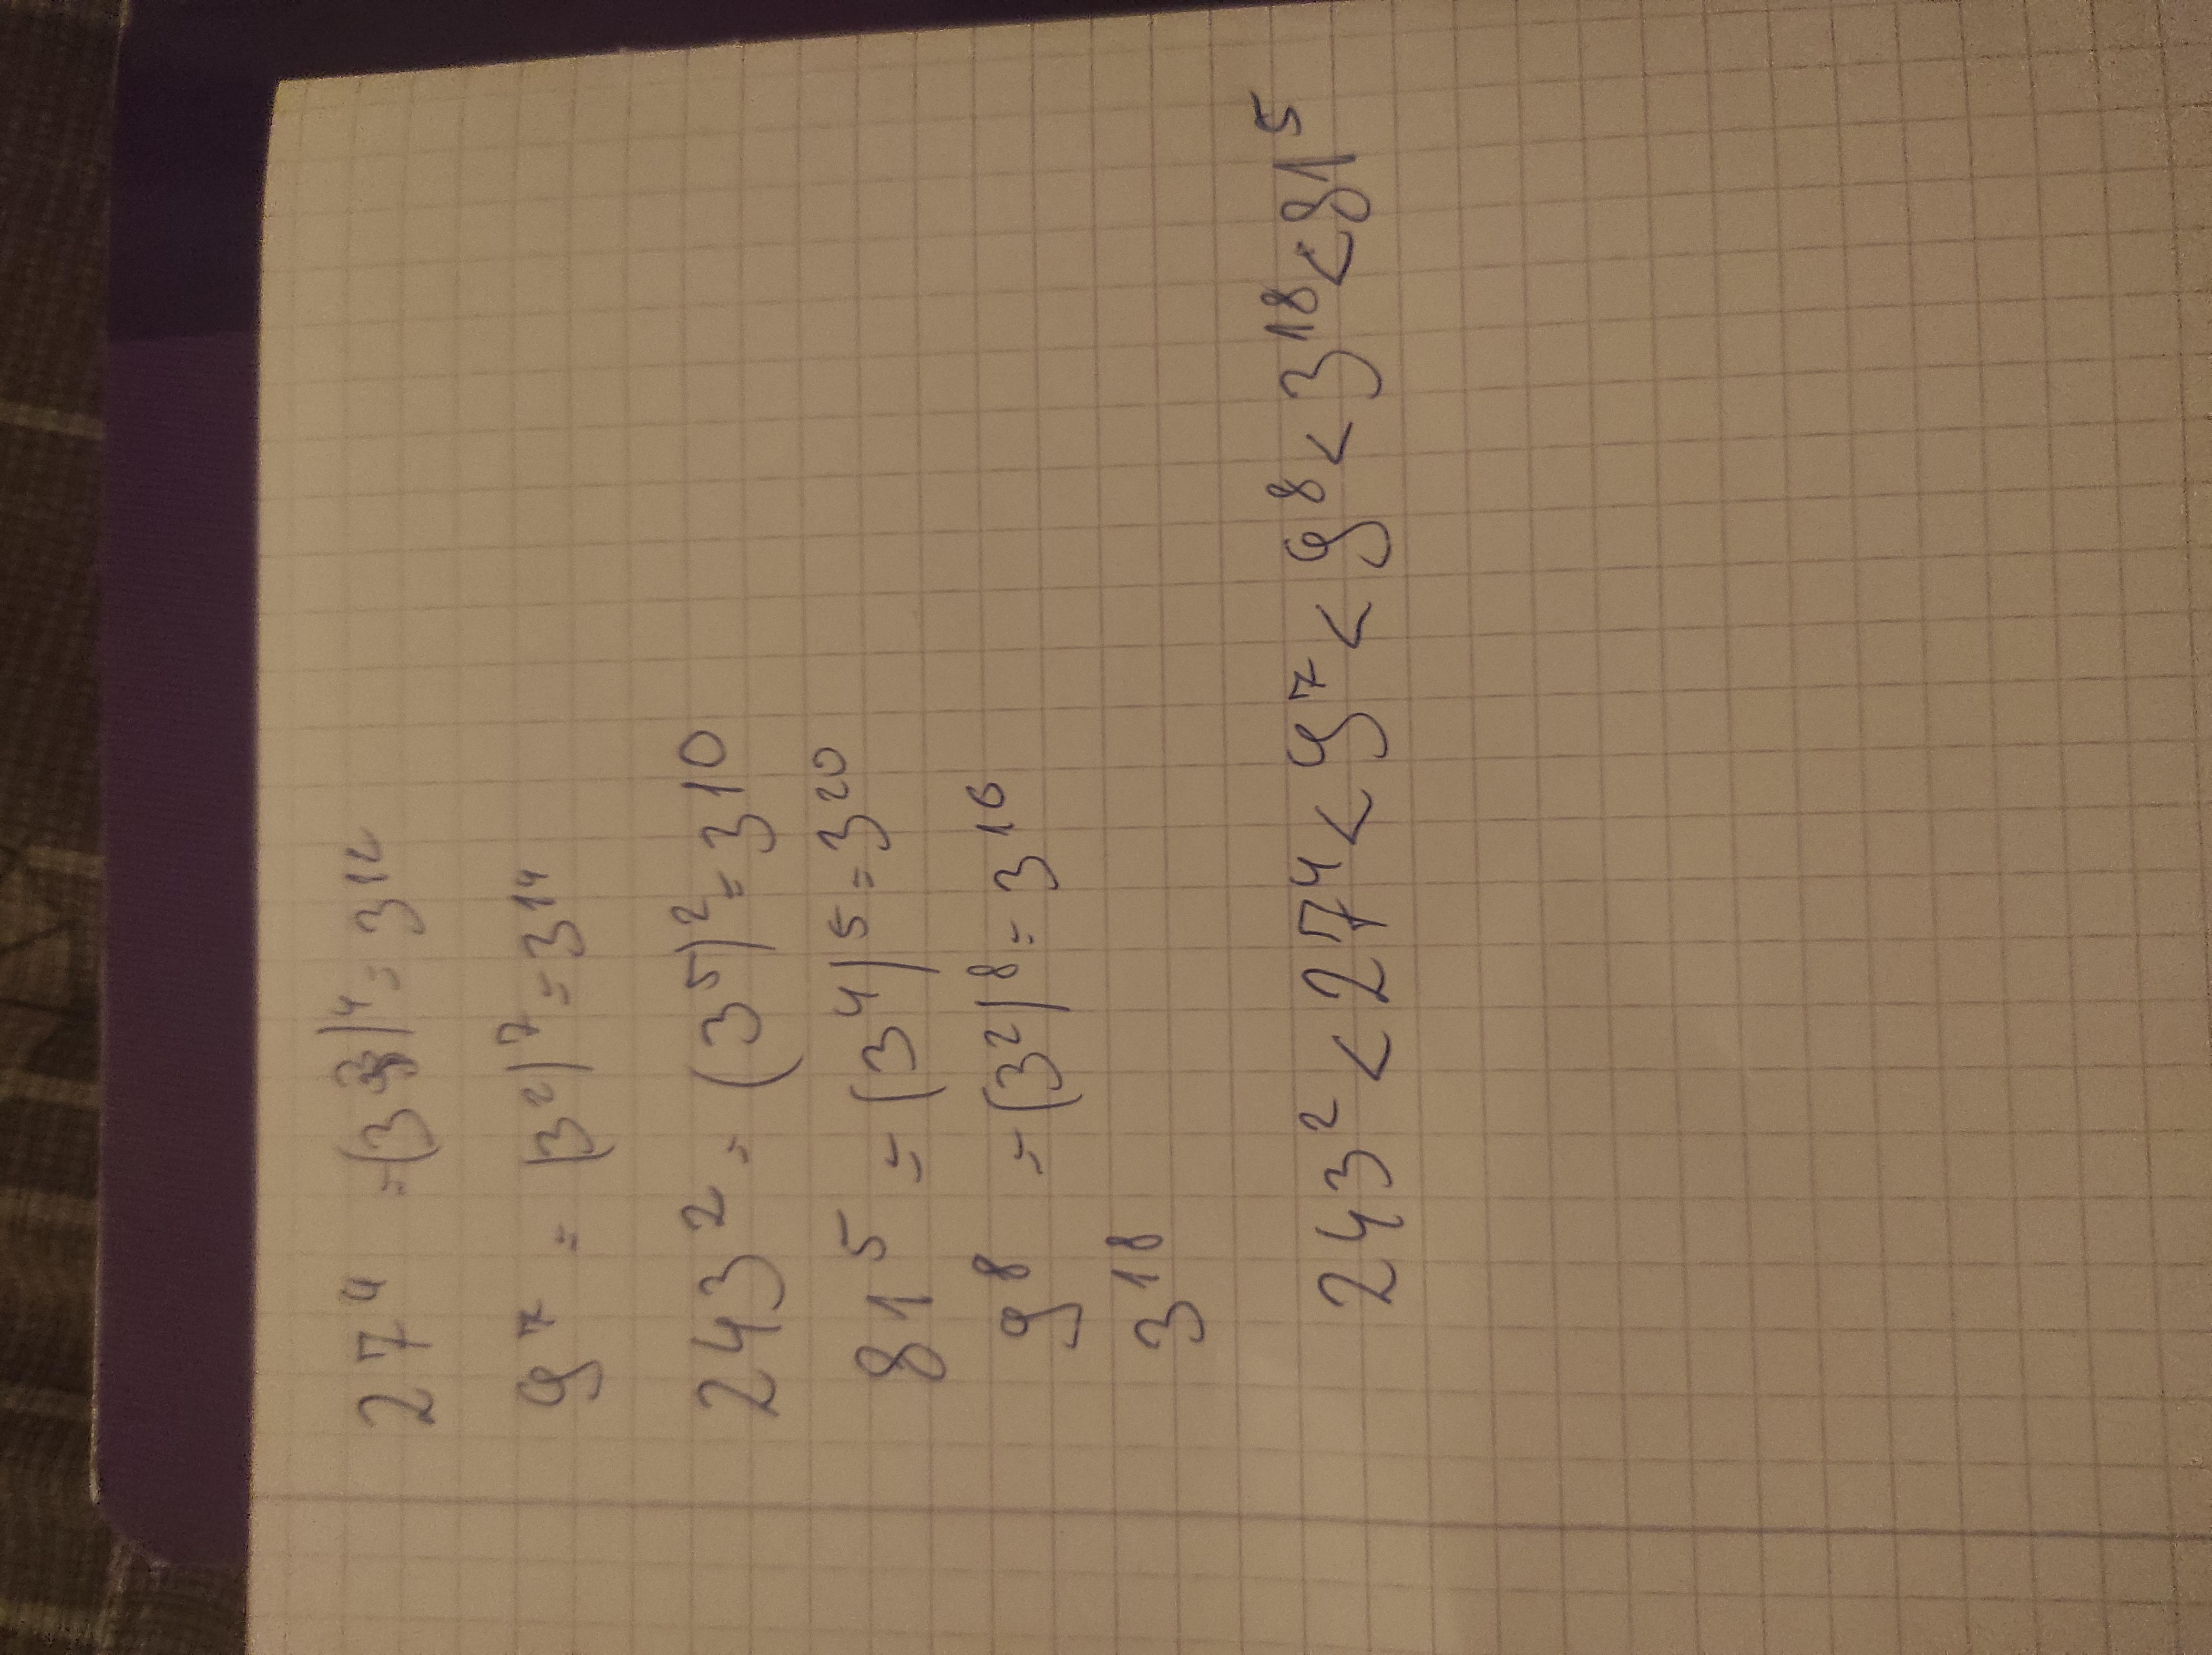 27⁴ = (3³)⁴ = 3¹²
9⁷ = (3²)⁷ = 3¹⁴
243² = (3⁵)² = 3¹⁰
81⁵ = (3⁴)⁵ = 3²⁰
9⁸ = (3²)⁸ = 3¹⁶
3¹⁸
243² < 27⁴ < 9⁷ < 9⁸ < 3¹⁸ < 81⁵